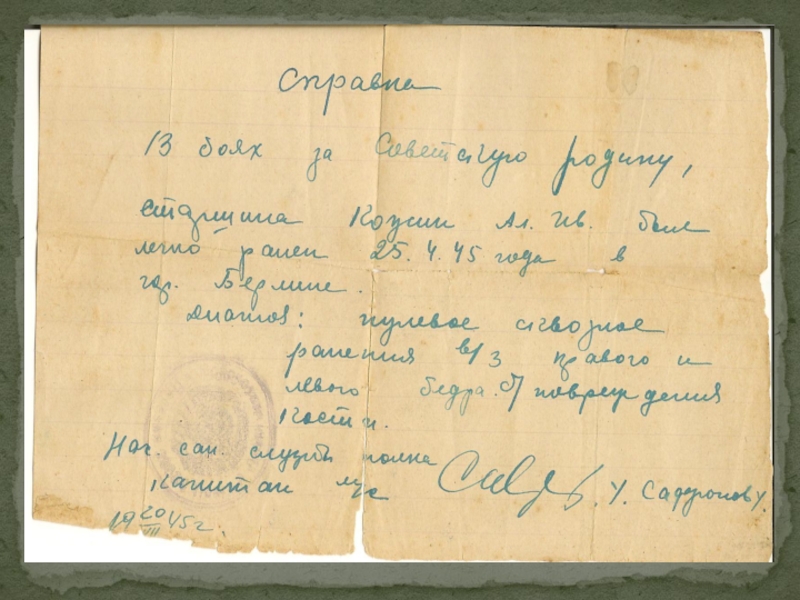 Справка
В боях за Советскую родину,
старшина Кочин Ал. Ив. был
легко ранен 25. 4. 45 года в
гор. Берлине.
Диагноз: пулевое сквозное
ранения в/з правого и
левого бедра. б/повреждения
кости.
Нач. сан. службы полка
капитан м/с
У.
20
19 VII 45 г.